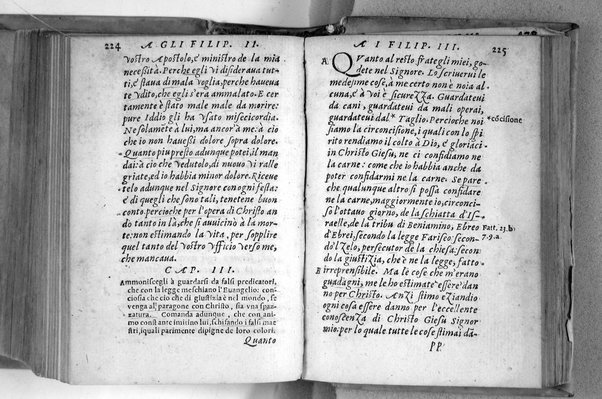 224 A GLI FILIP. II.
vostro Apostolo, e ministro de la mia
necessità. Perche egli vi disideraua tut-
ti, e staua di mala voglia, perche haueua
te vdito, che egli s'era ammalato. E cer
tamente è stato male male da morire:
pure Iddio gli ha vsato misericordia.
Ne solamēte à lui, ma ancor à me: à cio
che io non hauessi dolore sopra dolore.
Quanto piu presto adunque potei, il man
dai: à cio che vedutolo, di nuouo vi ralle
griate, ed io habbia minor dolore. Riceue
telo adunque nel Signore con ogni festa:
e di quegli che sono tali, tenetene buon
conto. percioche per l'opera di Christo an
dò tanto in là, che si auuicinò à la mor-
te: non estimando la vita, per supplire
quel tanto del vostro vfficio verso me,
che mancaua.
CAP. III.
Ammonisceli à guardarsi da falsi predicatori,
che con la legge meschiano l'Euangelio: con-
ciosia che cio che di giustitia è nel mondo, se
venga al paragone con Christo, sia vna spaz-
zatura. Comanda adunque, che con ani
mo constante imitino lui, schifando i falsi mae
stri, i quali parimente dipigne de loro colori.
Quanto
A I FILIP. III. 225
A QVanto al resto frategli miei, go-
dete nel Signore. Lo scriuerui le
medesime cose, à me certo non è noia al-
cuna, e à voi è sicurezza. Guardateui
da cani, guardateui da mali operai,
guardateui dal * Taglio. Percioche noi
*cōcisione
siamo la circoncisione, i quali con lo spi
rito rendiamo il colto à Dio, e gloriaci
in Christo Giesu, ne ci confidiamo ne
la carne: come che io habbia anche da
poter confidarmi ne la carne. Se pare
che qualunque altro si possa confidare
ne la carne, maggiormente io, circonci-
so l'ottauo giorno, de la schiatta d'Is-
raelle, de la tribu di Beniamino, Ebreo
Fatt. 23. b.
d'Ebrei. secondo la legge Fariseo: secon-
7. 9. a.
do'l zelo, persecutor de la chiesa: secon-
do la giustitia, che è ne la legge, fatto
B irreprensibile. Ma le cose che m'erano
guadagni, me le ho estimate essere dan
no per Christo. Anzi stimo etiandio
ogni cosa essere danno per l'eccellente
conoscenza di Christo Giesu Signor
mio: per lo quale tutte le cose stimai da-
PP